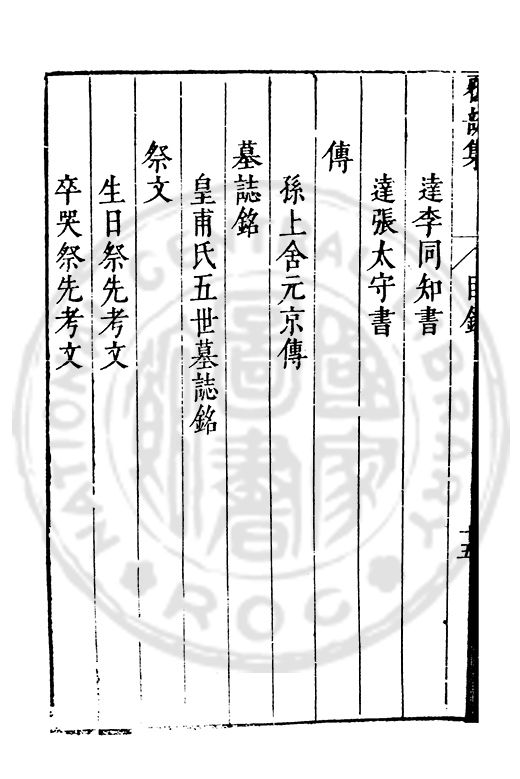 達李同知書
達張太守書
傳
孫上舍元京傳
墓誌銘
皇甫氏五世墓誌銘
祭文
生日祭先考文
卒哭祭先考文
目錄
十五
NATIONAL CENTRAL LIBRARY
ROC
國家圖書